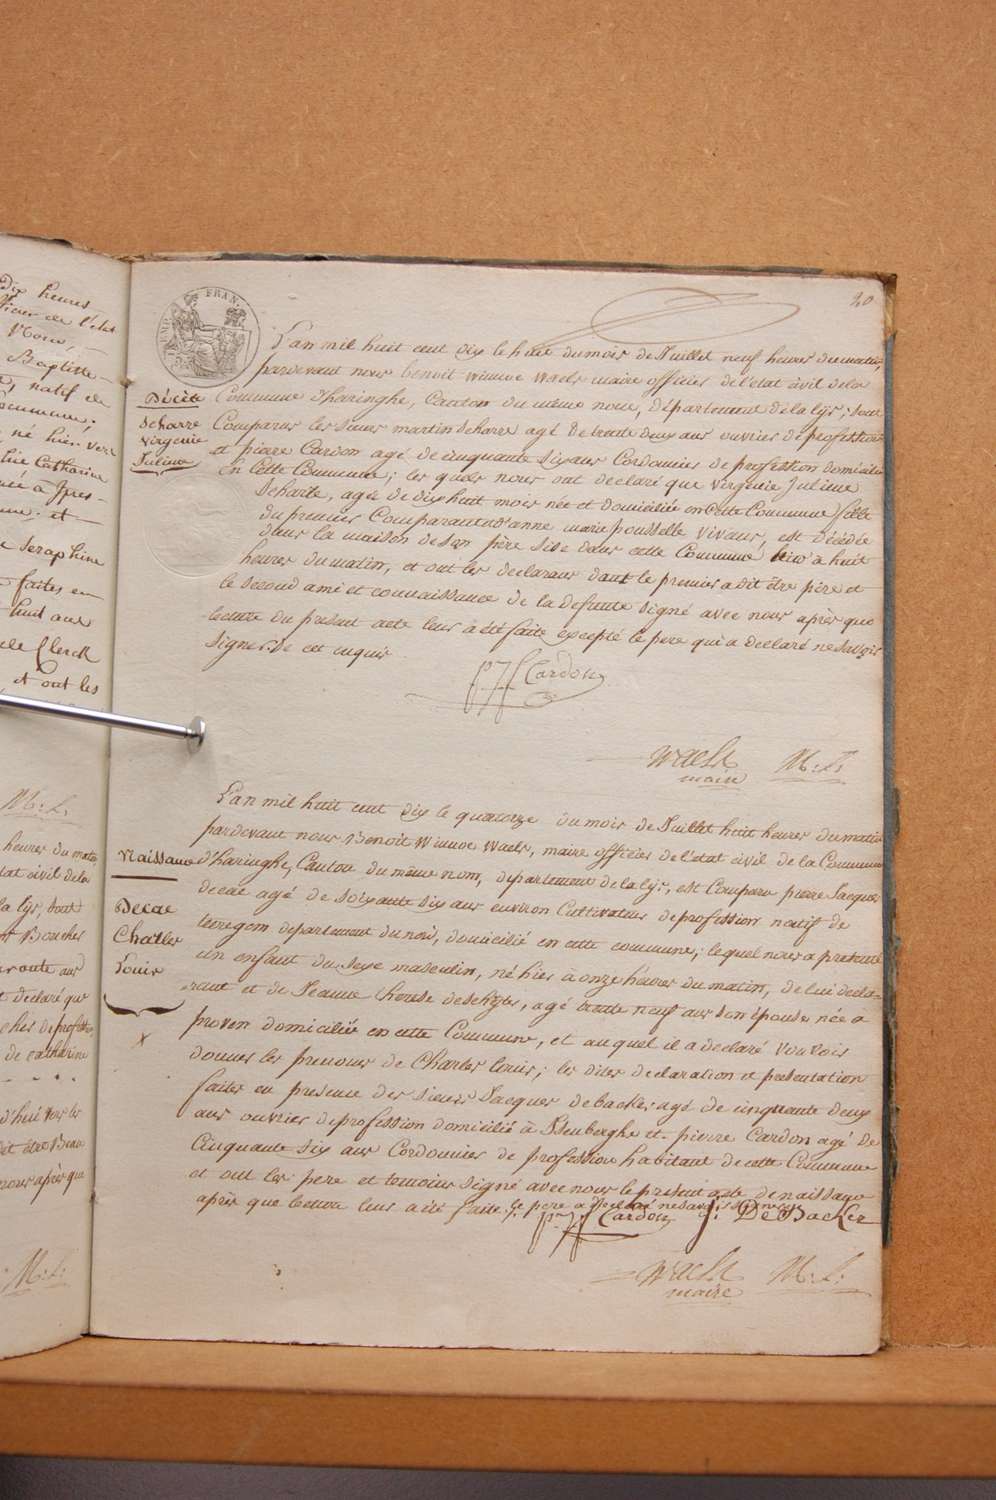 20
FRAN.
L'an mil huit cent dix le huit du mois de Juillet neuf heures du matin,
pardevant nous benoit winnoc Waels maire officier de l'etat civil de la
Commune d'haringhe, Canton du même nom, département de la lijs; sont
Décès
Comparus les sieurs martin deharre agé de trente deux ans ouvrier de profession
deharre
et pierre Cardon agé de cinquante six ans Cordonnier de profession domicilié
virgenie
en cette Commune; les quels nous ont declaré que virgenie Julienne
Julienne
deharte, agée de dix huit mois née et domiciliée en cette Commune fille
du premier Comparant et d'anne marie pousselle vivans, est décédée
dans la maison de son père sise dans cette Commune hier à huit
heures du matin, et ont les declarans dont le premier a dit être père et
le second ami et connaissance de la defunte signé avec nous après que
lecture du présent acte leur à été faite excepté le pere qui a declaré ne savoir
signer de cet enquis
P J F Cardon
Waels M: L:
maire
L'an mil huit cent dix le quatorze du mois de Juillet huit heures du matin
pardevant nous Benoît Winnoc Waels, maire officier de l'etat civil de la Commune
Naissance
d'haringhe, Canton du même nom, département de la lijs, est Comparu pierre Jacques
decae agé de soixante six ans environ Cultivateur de profession natif de
Decae
teregem departement du nord, domicilié en cette commune; lequel nous a presenté
Charles
un enfant du sexe masculin, né hier à onze heures du matin, de lui decla-
Louis
rant et de Jeanne therese deschÿter, agé trente neuf ans son épouse née a
proven domiciliée en cette Commune, et au quel il a declaré vouloir
donner les prenoms de Charles louis; les dites declaration et presentation
faites en presence des sieurs Jacques debacker agé de cinquante deux
ans ouvrier de profession domicilié à Isenberghe et pierre Cardon agé de
Cinquante six ans Cordonnier de profession habitant de cette Commune
et ont les pere et temoins signé avec nous le present acte de naissance
après que lecture leur a été faite. le pere a declaré ne savoir signer
P J F Cardon J: De Backer
Waels M: L:
maire
dix heures
officier de l'etat
Baptiste
natif de
commune;
né hier vers
Catharine
à Ypres
et
Seraphine
faites en
huit ans
Clerck
et ont les
M: L:
heures du matin,
etat civil de la
la lijs, sont
declaré que
de profession,
de catharine
nous après que
M: L: